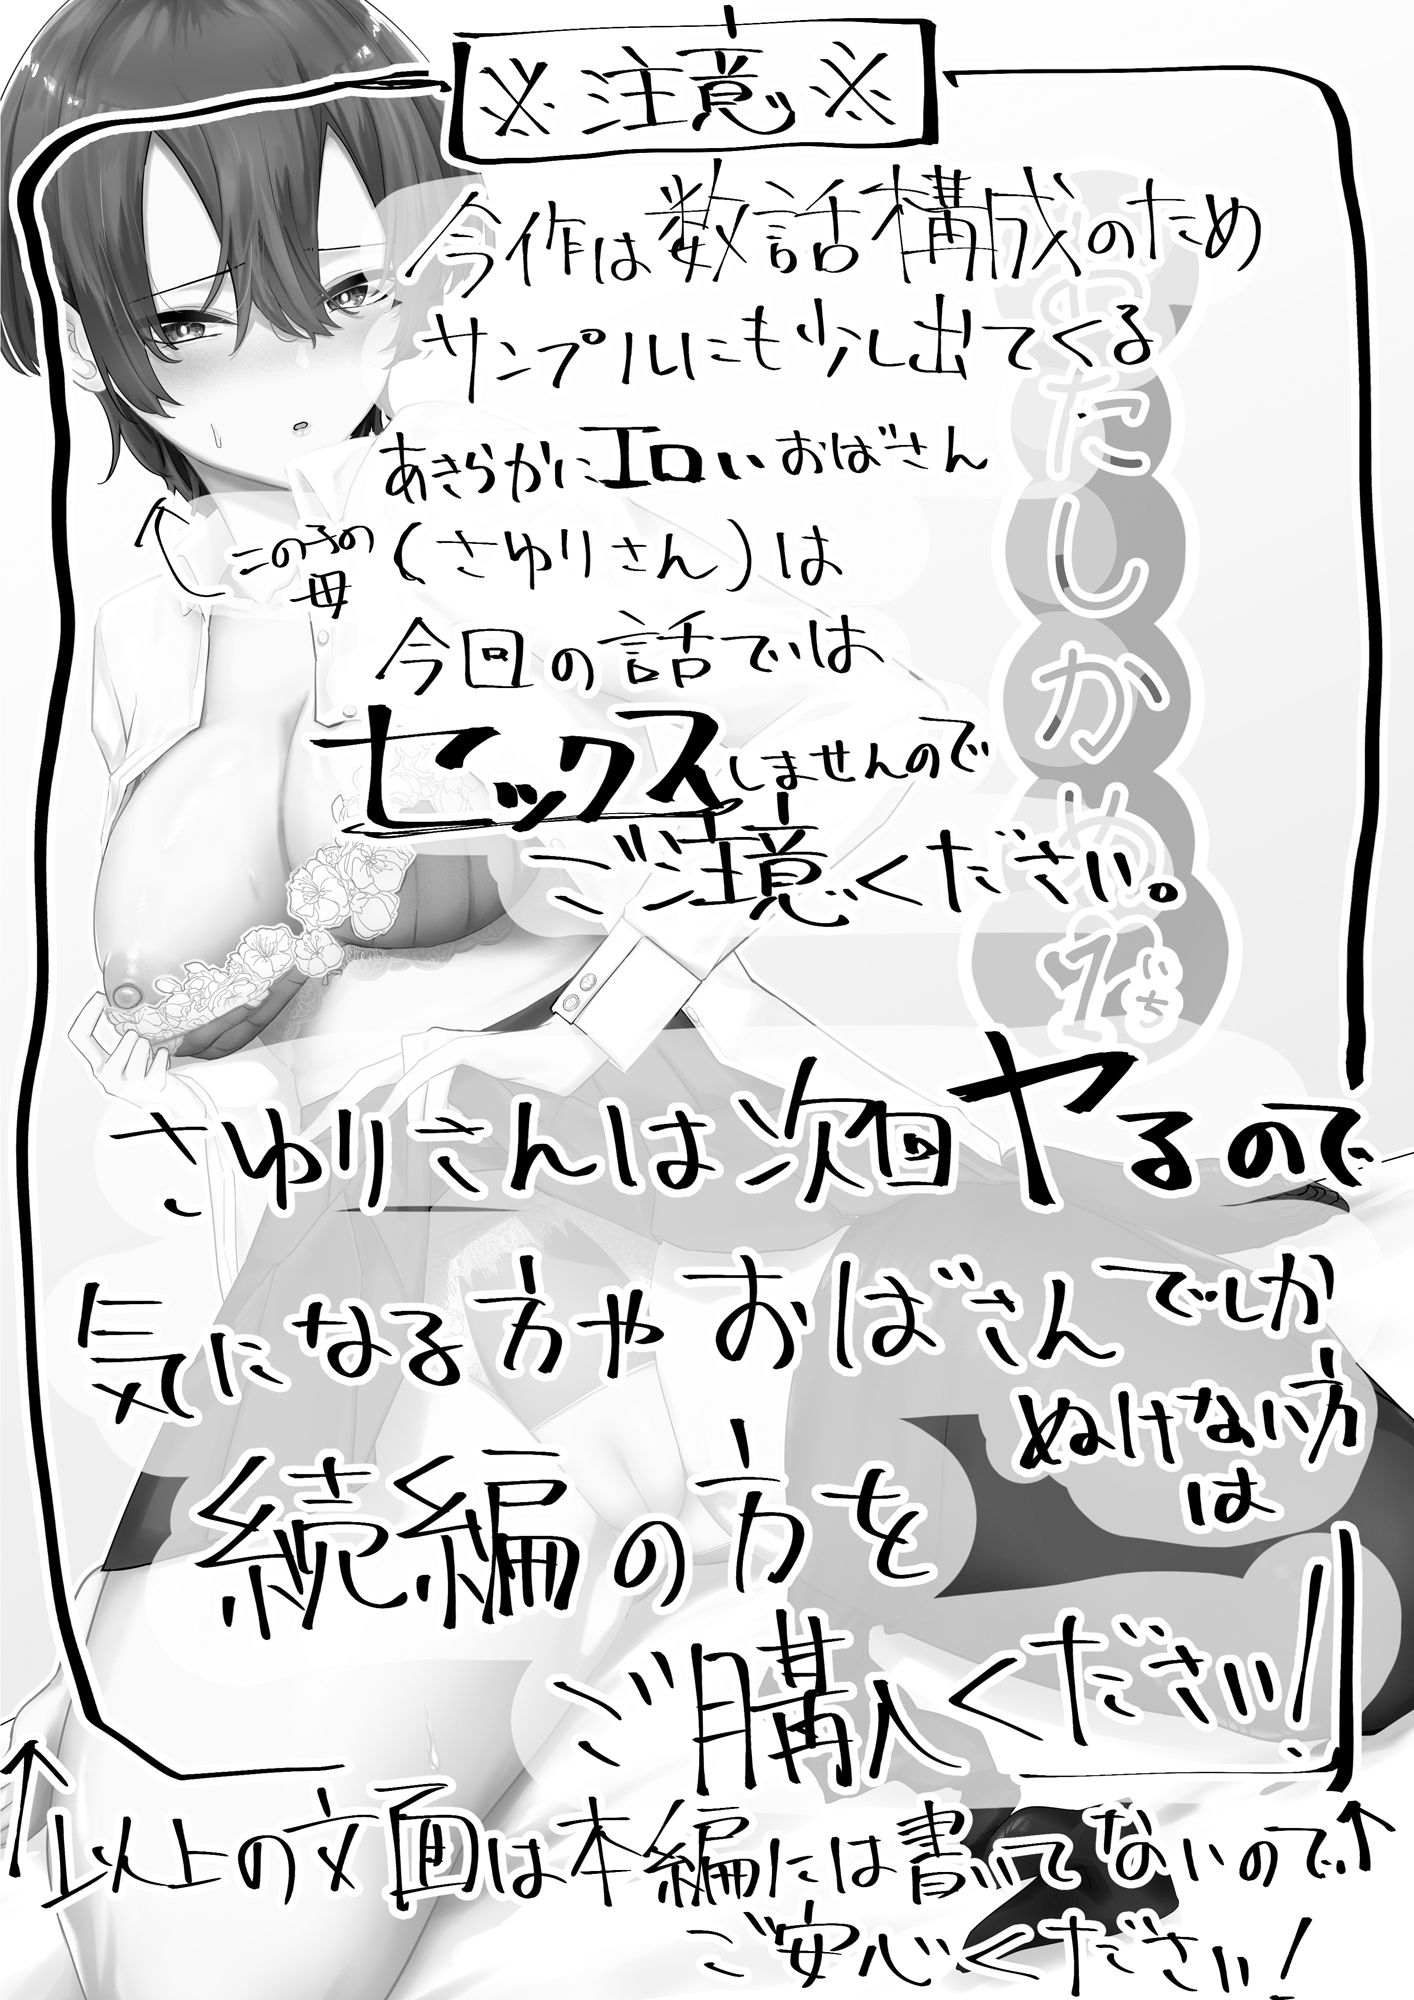 ※注意※
今作は数話構成のため
サンプルにも少し出てくる
あきらかにエロいおばさん
この子の母
(さゆりさん)は
今回の話では
セックスしませんので
ご注意ください。
さゆりさんは次回ヤるので
気になる方やおばさんでしか
ぬけない方は
続編の方を
ご購入ください!
以上の文面は本編には書いてないので
ご安心ください!
たしかめ
1
いち